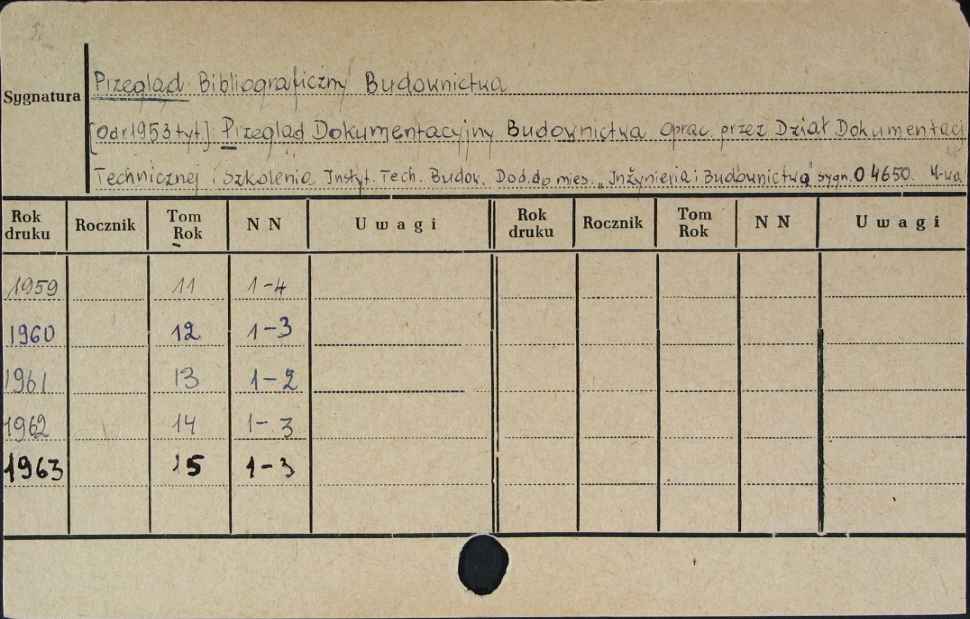 Sygnatura
Przegląd Bibliograficzny Budownictwa
[Od r 1953 tyt.] Przegląd Dokumentacyjny Budownictwa oprac. przez Dział Dokumentacj
Technicznej i Szkolenia Instyt. Tech. Budow. Dod. do mies. „Inżynieria i Budownictwo" sygn. 04650. W-wa
Rok druku Rocznik Tom Rok NN Uwagi Rok druku Rocznik Tom Rok NN Uwagi
1959 11 1-4
1960 12 1-3
1961 13 1-2
1962 14 1-3
1963 15 1-3